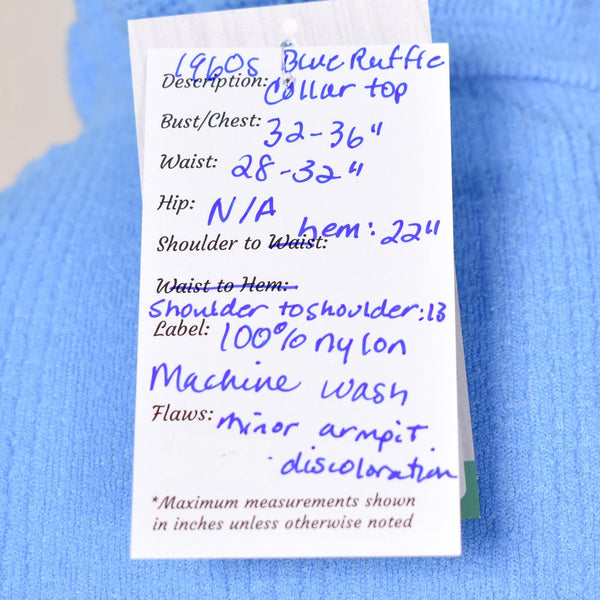 1960s Blue Ruffle
Description: Collar top
Bust/Chest: 32-36"
Waist: 28-32"
Hip: N/A
Shoulder to Waist: hem: 22"
Waist to Hem:
Shoulder to shoulder: 13
Label: 100% nylon
Machine wash
Flaws: minor armpit
discoloration
*Maximum measurements shown
in inches unless otherwise noted